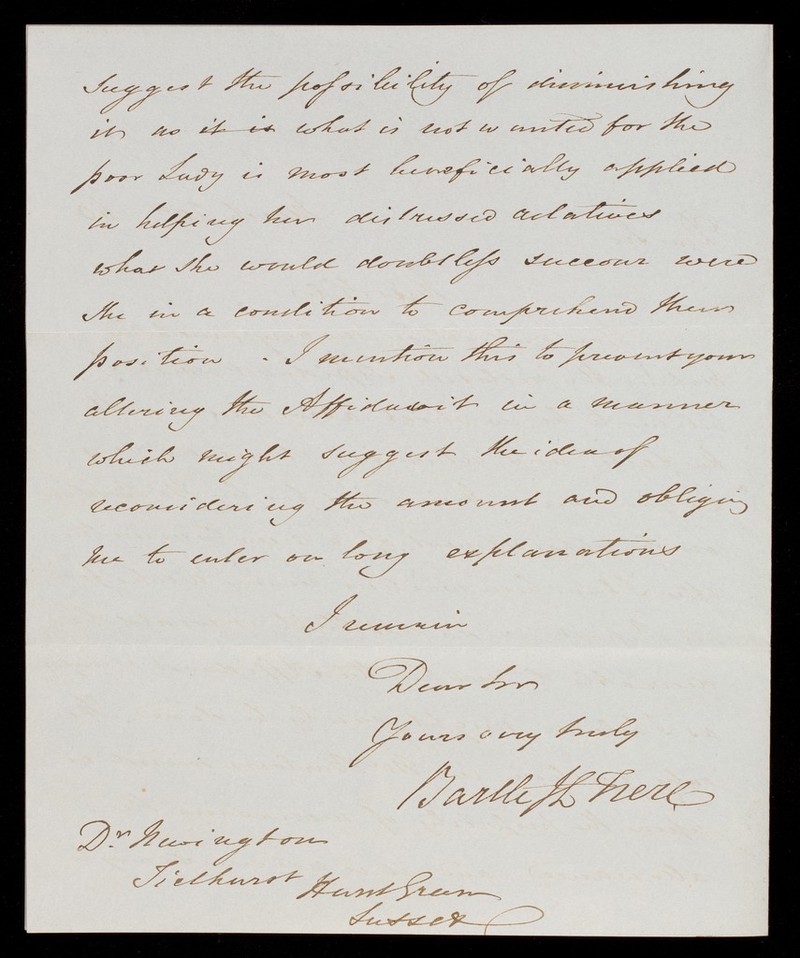 suggest the possibility of diminishing
it, as it is what is not wanted for the
poor Lady is most beneficially applied
in helping her distressed relatives
what she would doubtless succour were
she in a condition to comprehend their
position - I mention this to prevent your
altering the Affidavit in a manner
which might suggest the idea of
reconsidering the amount and obliging
me to enter on long explanations
I remain
Dear Sir
Yours very truly
Bartle J L Frere
Dr. Newington
Ticehurst Hurst Green
Sussex